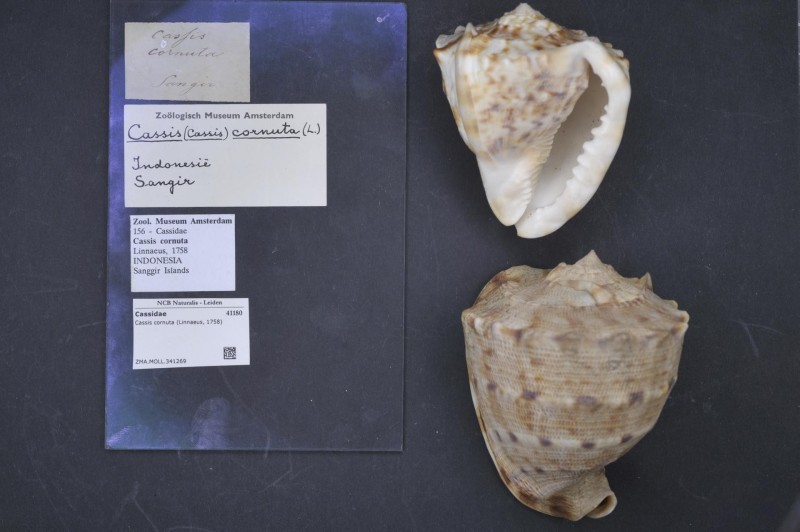 Cassis
cornuta
Sangir
Zoölogisch Museum Amsterdam
Cassis (Cassis) cornuta (L.)
Indonesië
Sangir
Zool. Museum Amsterdam
156 - Cassidae
Cassis cornuta
Linnaeus, 1758
INDONESIA
Sanggir Islands
NCB Naturalis - Leiden
Cassidae 41180
Cassis cornuta (Linnaeus, 1758)
ZMA.MOLL.341269